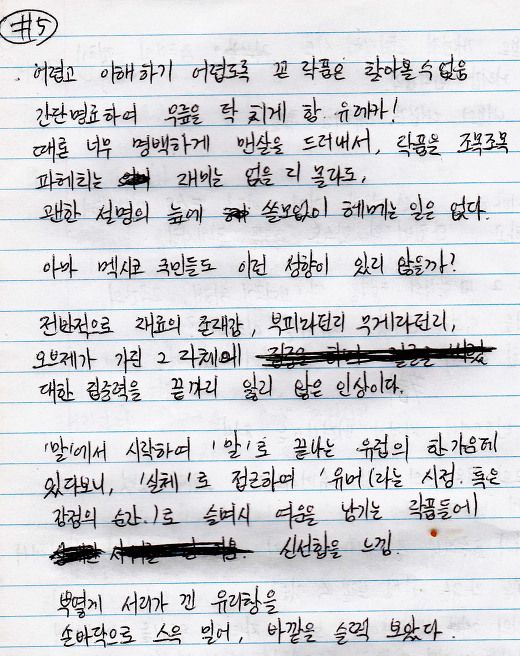 #5
. 어렵고 이해하기 어렵도록 꼰 작품은 찾아볼 수 없음
간단명료하여 무릎을 탁 치게 할 유쾌가!
때론 너무 명백하게 맨살을 드러내서, 작품을 조목조목
파헤치는 재미는 없을 지 몰라도,
괜한 설명의 늪에 쓸모없이 헤메는 일은 없다.
아마 멕시코 국민들도 이런 성향이 있지 않을까?
전반적으로 재료의 존재감, 부피라던지 무게라던지,
오브제가 가진 그 자체에
대한 집중력을 끝까지 잃지 않은 인상이다.
'말'에서 시작하여 '말'로 끝나는 유럽의 한가운데
있다보니, '실체'로 접근하여 '유머(라는 시점. 혹은
감정의 순간.)로 슬며시 여운을 남기는 작품들에
신선함을 느낌.
뿌옇게 서리가 낀 유리창을
손바닥으로 스윽 밀어, 바깥을 슬쩍 보았다.